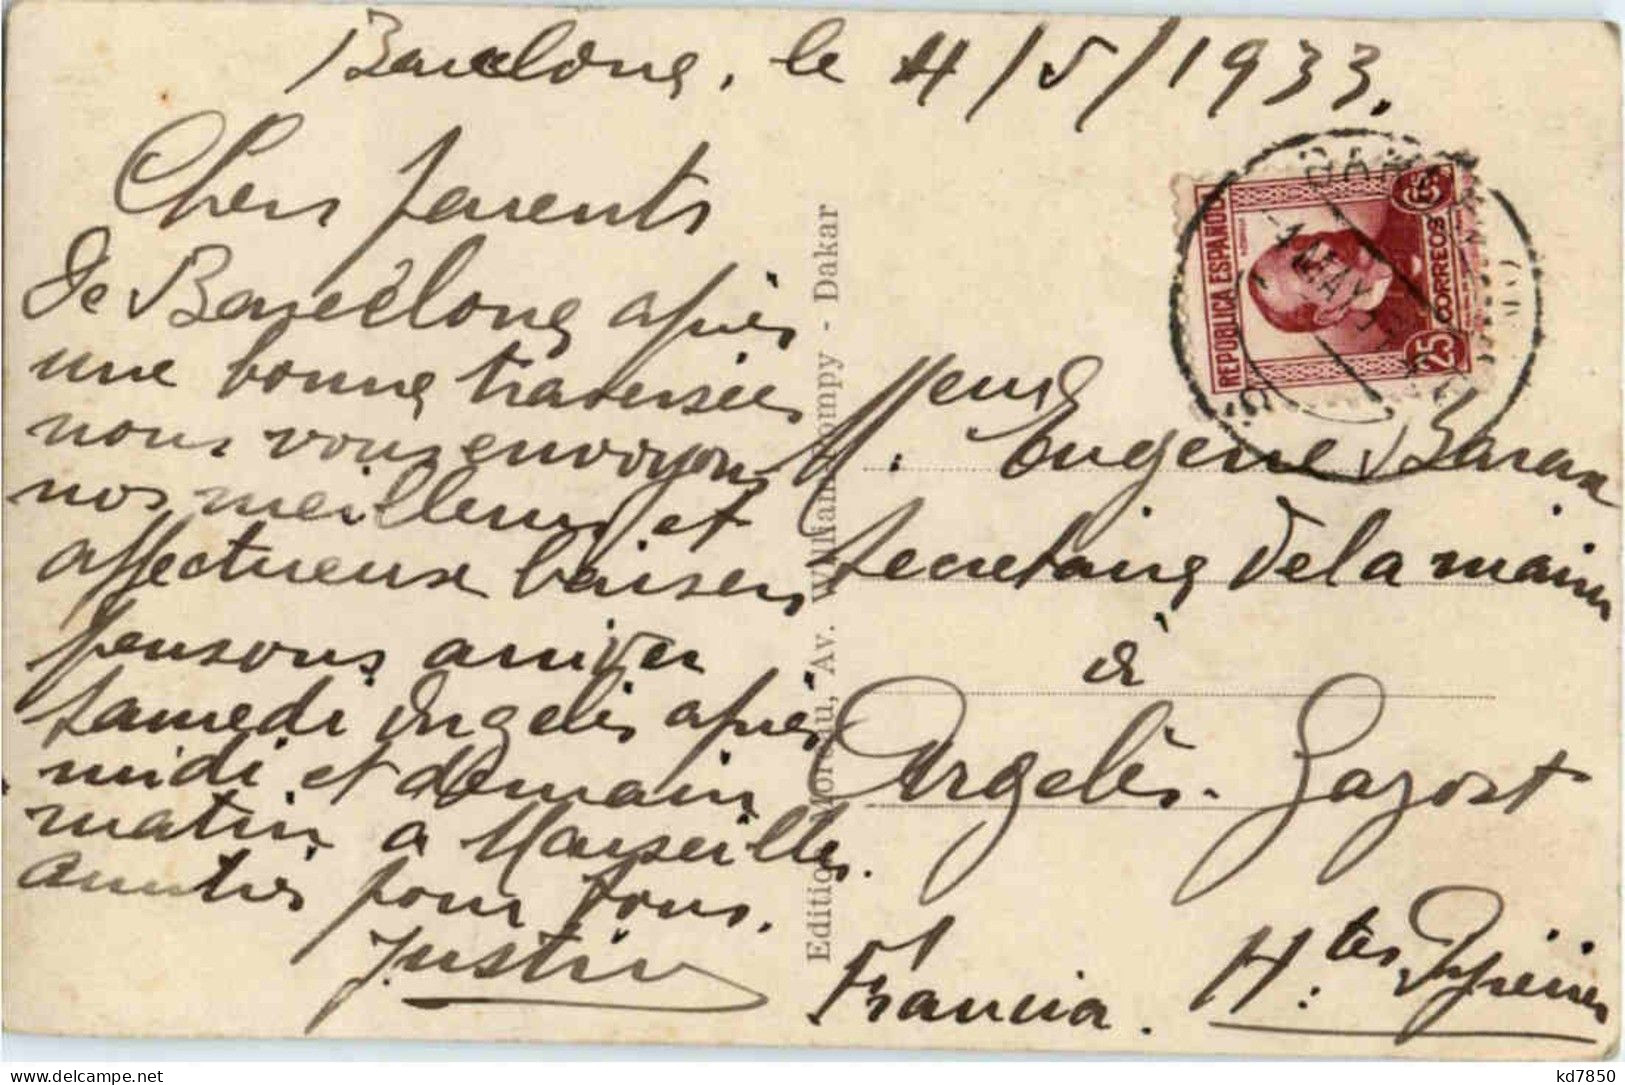 Barcelone, le 4/5/1933.
Chers parents
De Barcelone après
une bonne traversée
nous vous envoyons
nos meilleurs et
affectueux baisers
pensons arriver
samedi Argelès après
midi et demain
matin a Marseilles.
amitiés pour tous.
Justin
Dakar
REPUBLICA ESPAÑOLA
CORREOS
25
MAY
M. Eugène
Secretaire de la mairie
à
Argelès-Gazost
Htes Pyrénées
Francia.